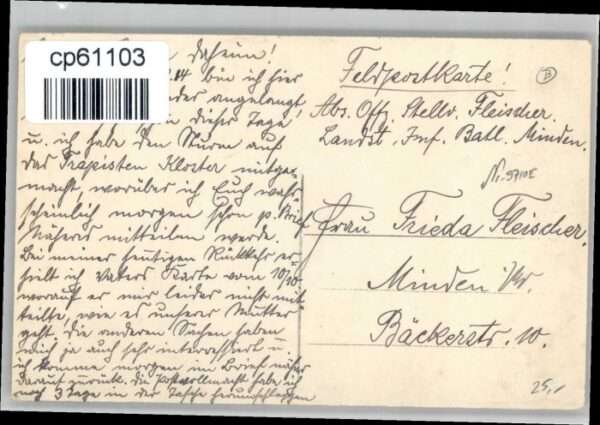 cp61103
daheim!
14 bin ich hier
wieder angelangt
in dieser Tage!
u. ich habe den Sturm auf
das Trapisten Kloster mitge-
macht, worüber ich Euch wahr-
scheinlich morgen schon p. Brief
Näheres mitteilen werde.
Bei meiner heutigen Rückkehr er-
hielt ich Vaters Karte vom 10/10.
worauf er mir leider nicht mit
teilte, wie es unserer Mutter
geht, die anderen Sachen haben
mich ja auch sehr interessiert u
ich komme morgen im Brief näher
darauf zurück. Die Postvollmacht habe ich
noch 3 Tage in der Tasche herumschleppen
Feldpostkarte!
B
Abs. Offz. Stellv. Fleischer.
Landst. Inf. Batl. Minden.
Frau Frieda Fleischer.
Minden i/W.
Bäckerstr. 10.
25,-